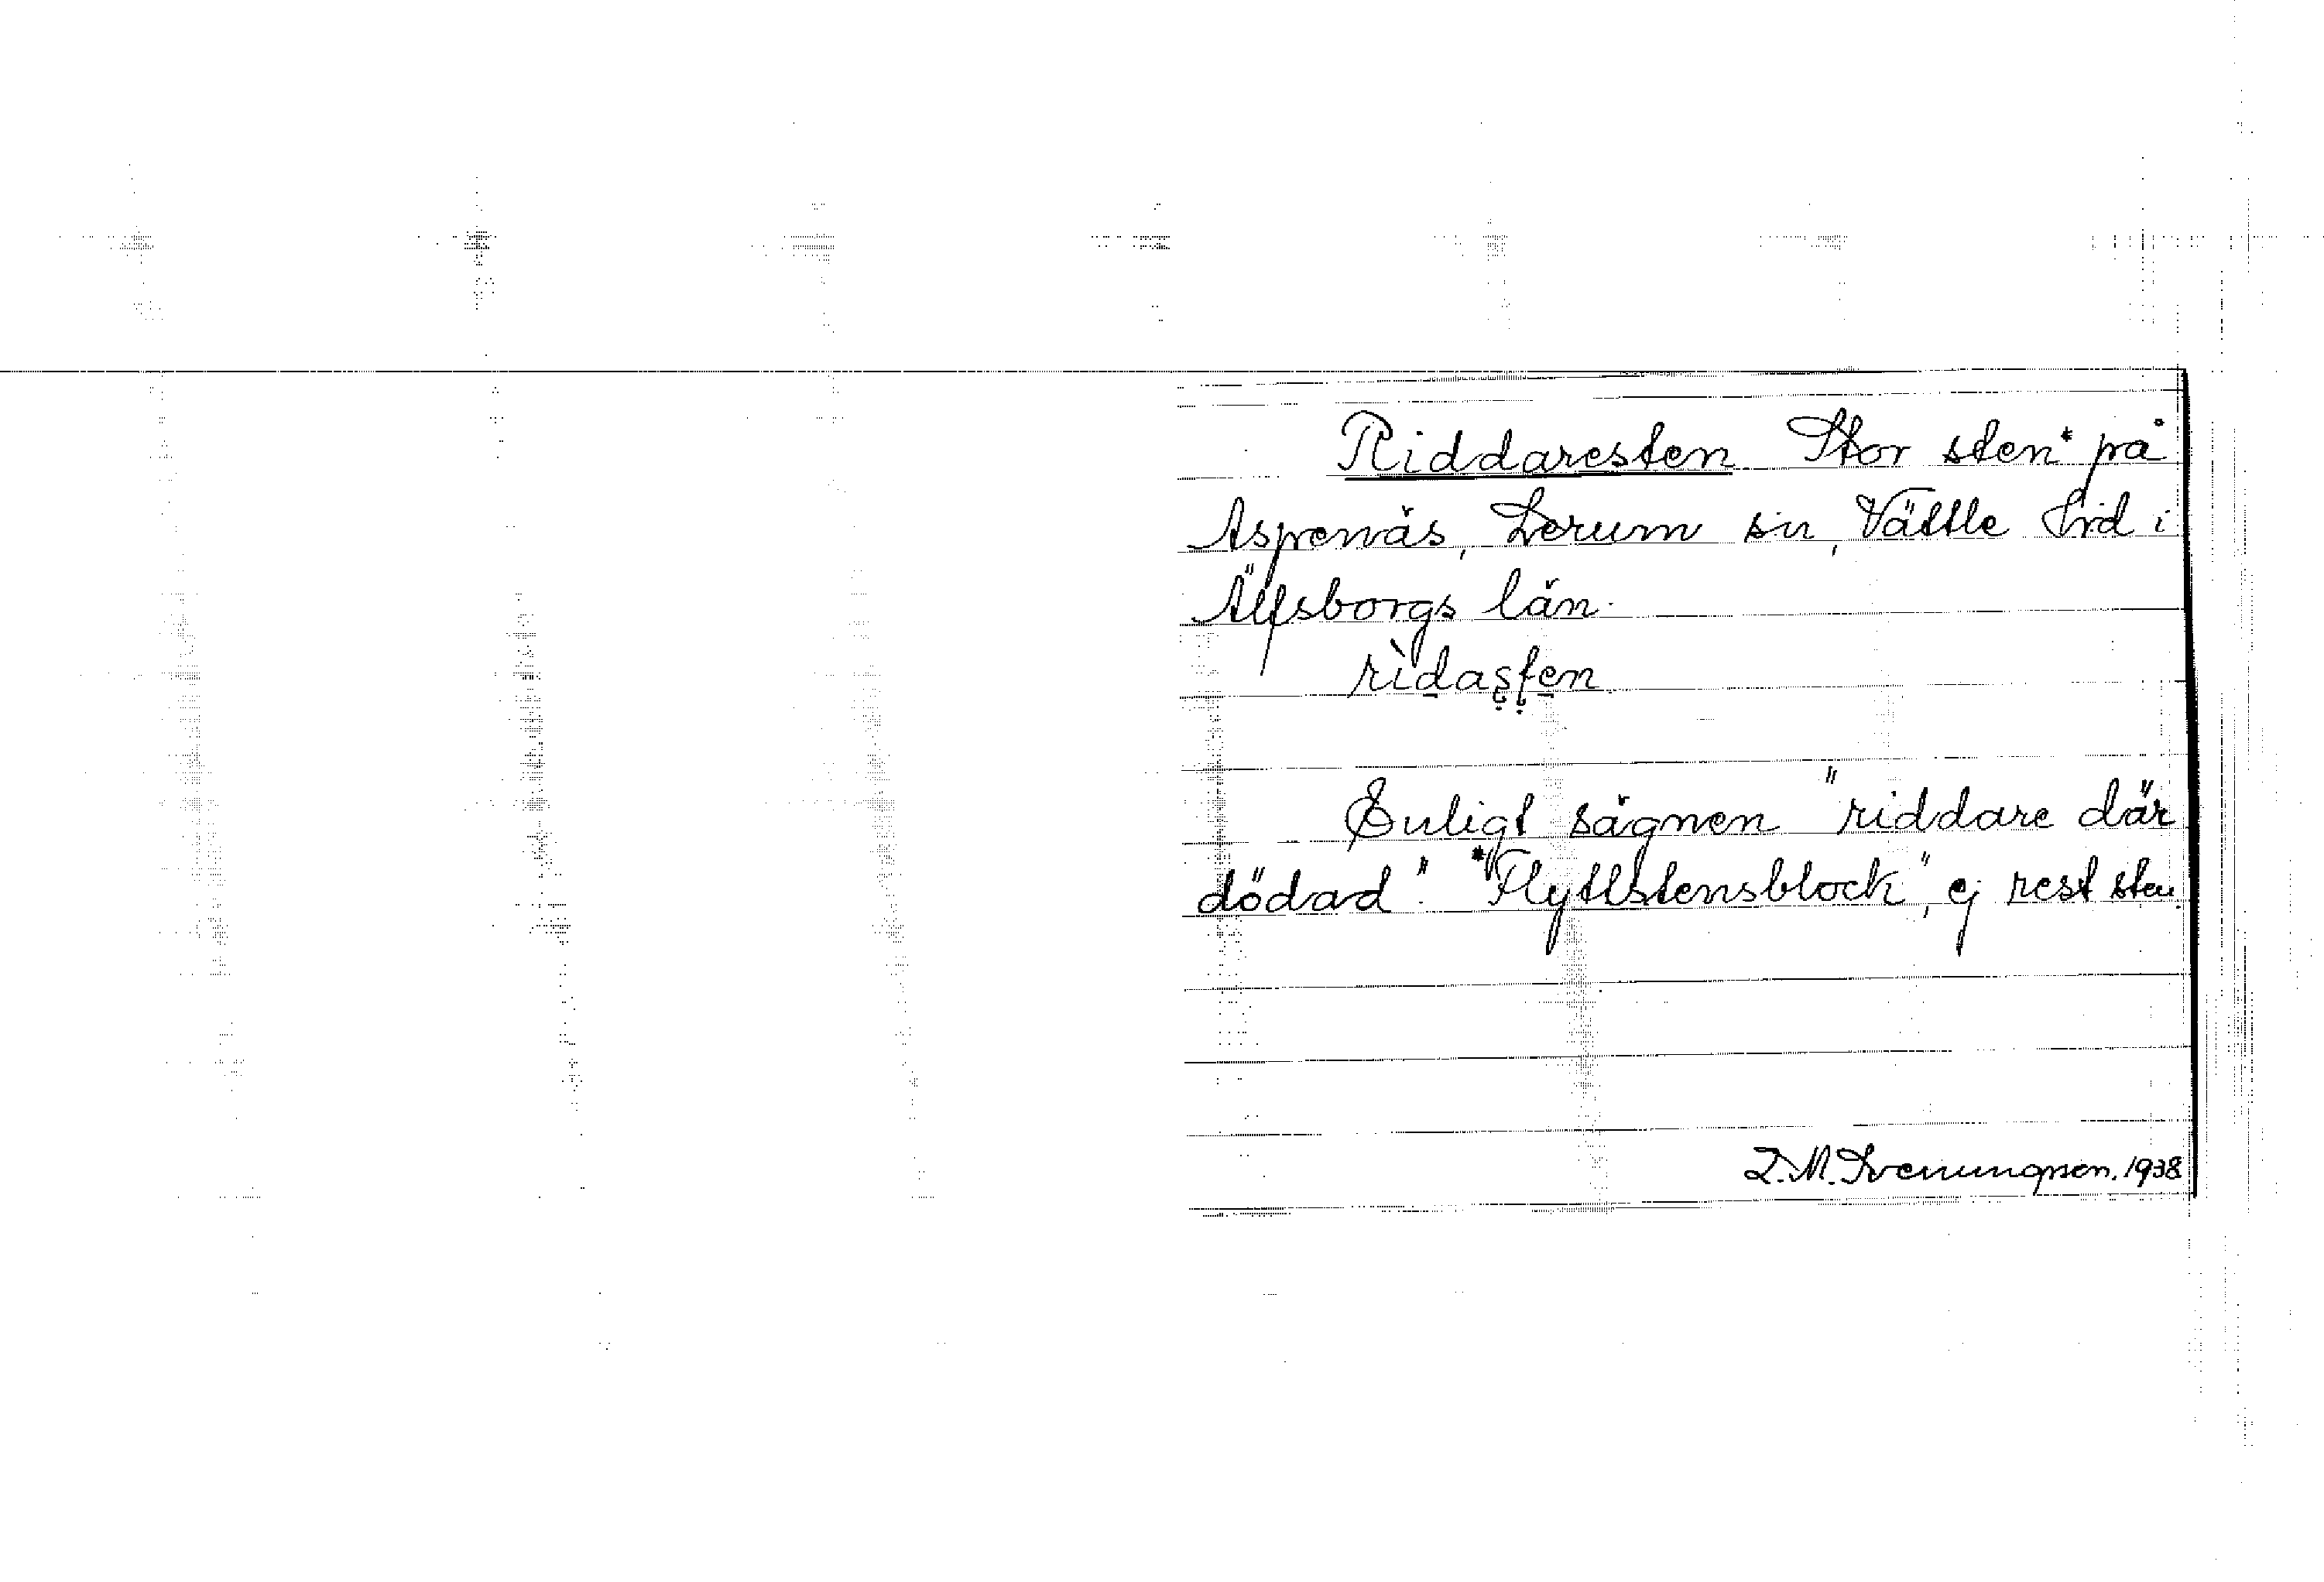 Riddaresten Stor sten* på
Aspenäs, Lerum sn, Vättle hrd i
Älfsborgs län.
rìdasten
Enligt sägnen "riddare där
dödad". *"Flyttstensblock", ej rest sten.
D.M. Svenungsson. 1938